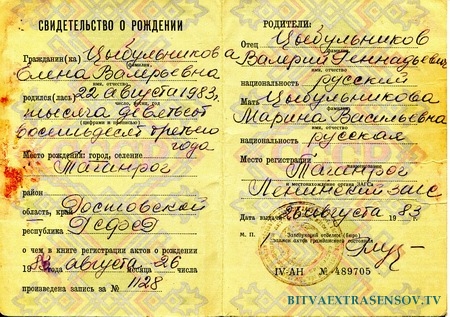 СВИДЕТЕЛЬСТВО О РОЖДЕНИИ
Гражданин(ка) Цыбульникова
фамилия,
Елена Валерьевна
имя, отчество
родился(лась) 22 августа 1983,
число, месяц, год
тысяча девятьсот
(цифрами и прописью)
восемьдесят третьего
года
Место рождения: город, селение
Таганрог
район
область, край Ростовской
республика РСФСР
о чем в книге регистрации актов о рождении
19 83 года августа месяца 26 числа
произведена запись за № 1128
РОДИТЕЛИ:
Отец Цыбульников
фамилия,
Валерий Геннадьевич
имя, отчество
национальность русский
Мать Цыбульникова
фамилия,
Марина Васильевна
имя, отчество
национальность русская
Место регистрации
Таганрог
наименование
Ленинский загс
и местонахождение органа ЗАГСа
Дата выдачи 26 августа 1983
М. П.
Заведующий отделом (бюро)
записи актов гражданского состояния
IV-АН № 489705
BITVAEXTRASENSOV.TV